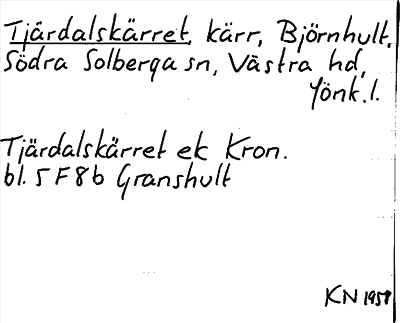 Tjärdalskärret, kärr, Björnhult,
Södra Solberga sn, Västra hd,
Jönk. l.
Tjärdalskärret ek Kron.
bl. 5 F 8 b Granshult
KN 1958